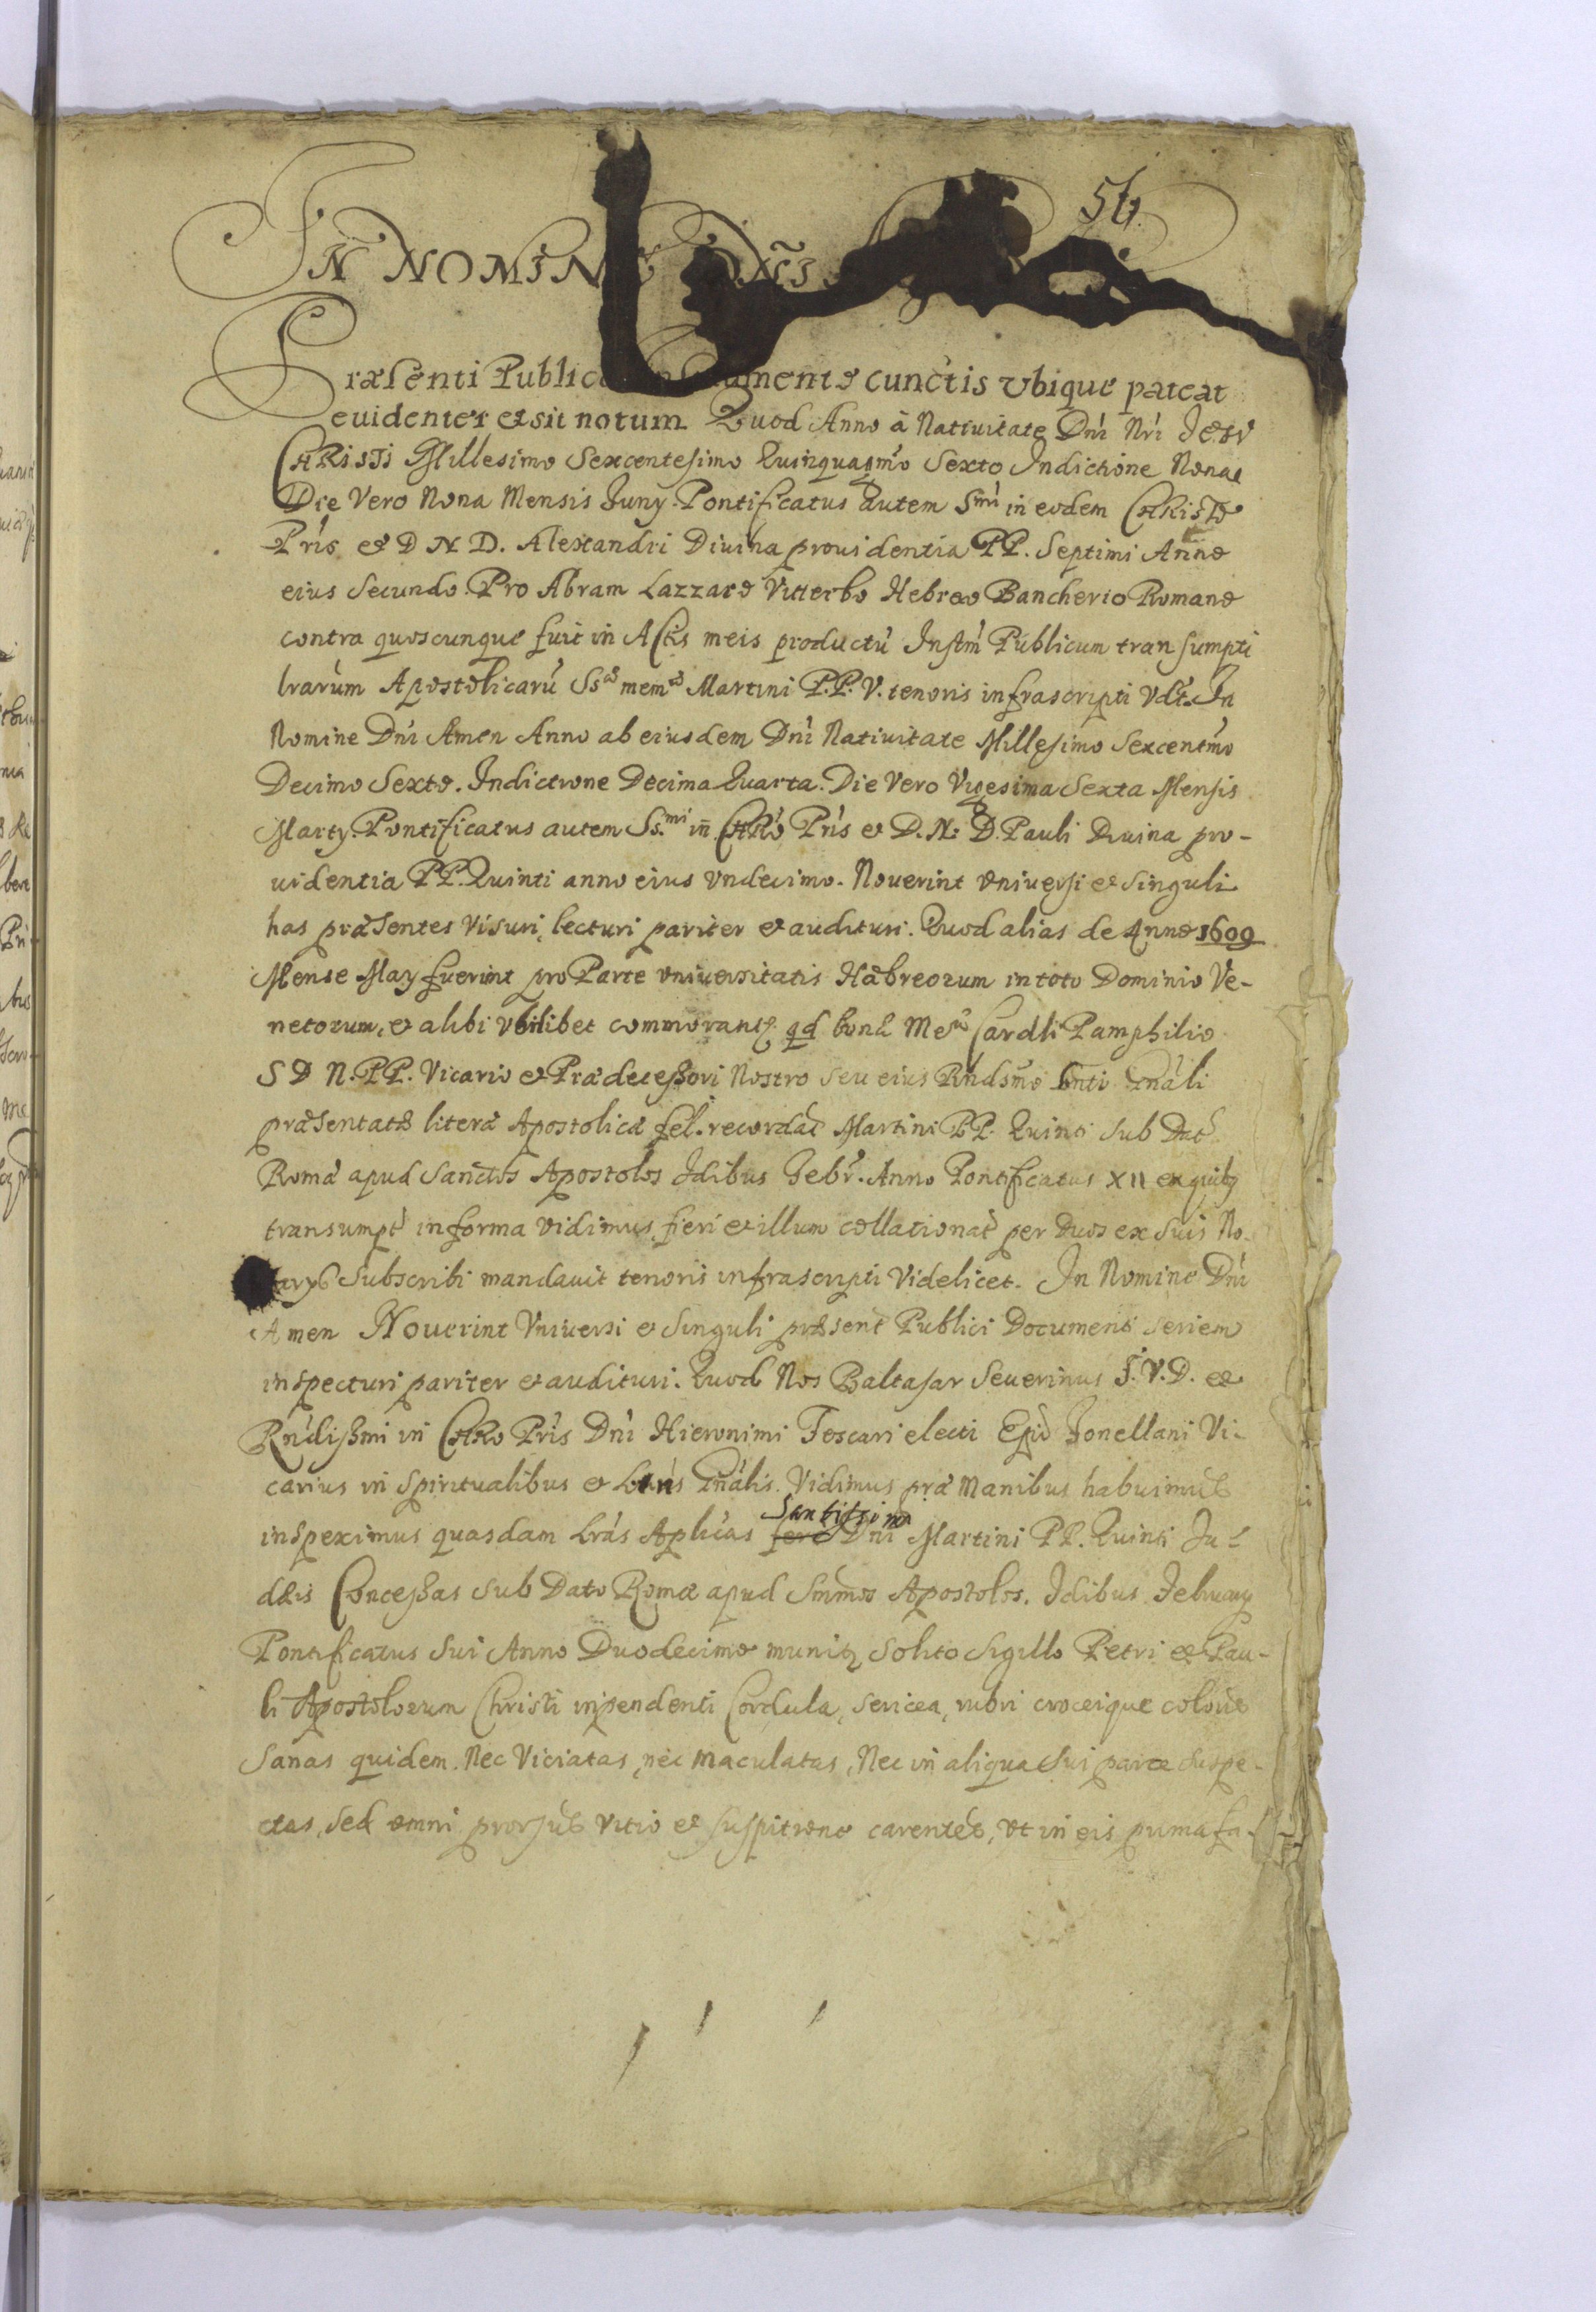 IN NOMINE DÑI
Præsenti Publico Instrumento cunctis vbique pateat
euidenter et sit notum Quod Anno à Natiuitate Dnì Nrì Iesv
CHRisti Millesimo Sexcentesimo Quinquagm̃o Sexto Indictione Nona
Die Vero Nona Mensis Iunÿ Pontificatus autem Smi in eodem CHRisto
Prìs et D N D. Alexandri Diuina prouidentia PP. Septimi Anno
eius Secundo Pro Abram Lazzaro Viterbo Hebreo Bancherio Romano
contra quoscunque fuit in Actis meis productù Instm̃ Publicum transumpti
lrarùm Apostolicarù Sscæ memæ Martini P.P. V. tenoris infrascripti Vdt. In
Nomine Dnì Amen Anno ab eiusdem Dnì Natiuitate Millesimo Sexcentm̃o
Decimo Sexto. Indictione Decima Quarta. Die Vero Vigesima Sexta Mensis
Martÿ. Pontificatus autem Ss.mi in CHRõ Prìs et D. N. D. Pauli Diuina pro-
uidentia PP. Quinti anno eius Vndecimo. Nouerint vniuersi et Singuli
has præsentes Visuri, lecturi pariter et audituri. Quod alias de Anno 1609
Mense Maÿ fuerint pro Parte vniuersitatis Hæbreorum in toto Dominio Ve-
netorum, et alibi Vbilibet commorant qd bonæ Meæ Cardli Pamphilio
S D N. PP. Vicario et Prædecessori Nostro Seu eius Rndsm̃o
præsentatæ literæ Apostolicæ fel. recordat Martini PP. Quinti Sub Dat
Romæ apud Sanctos Apostolos Idibus Febr. Anno Pontificatus XII ex quibus
transumpt in forma vidimus, fieri et illum collationat per Duos ex Suis No-
tarÿs Subscribi mandauit tenoris infrascripti Videlicet. In Nomine Dnì
Amen Nouerint Vniuersi et Singuli præsent Publici Documenti Seriem
inspecturi pariter et audituri. Quod Nos Baltasar Seuerinus I. V. D. et
Rndissmi in CHRo Prìs Dnì Hieronimi Foscari electi Epi Tonellani Vi-
carius in Spiritualibus et Gnàlis. Vidimus præ Manibus habuimus
inspeximus quasdam Lràs Aplicas fere Santissimi Dnì Martini PP. Quinti Iu-
dæis Concessas Sub Dato Romæ apud Apostolos. Idibus February
Pontificatus Sui Anno Duodecimo munit Solito Sigillo Petri et Pau-
li Apostolorum Christi inpendenti Cordula, Sericea, rubri croceique coloris
Sanas quidem. Nec Viciatas, nec Maculatas, Nec in aliqua Sui parte Suspe-
ctas, Sed omni prorsus Vitio et Suspitione carentes, Vt in eis prima fa-